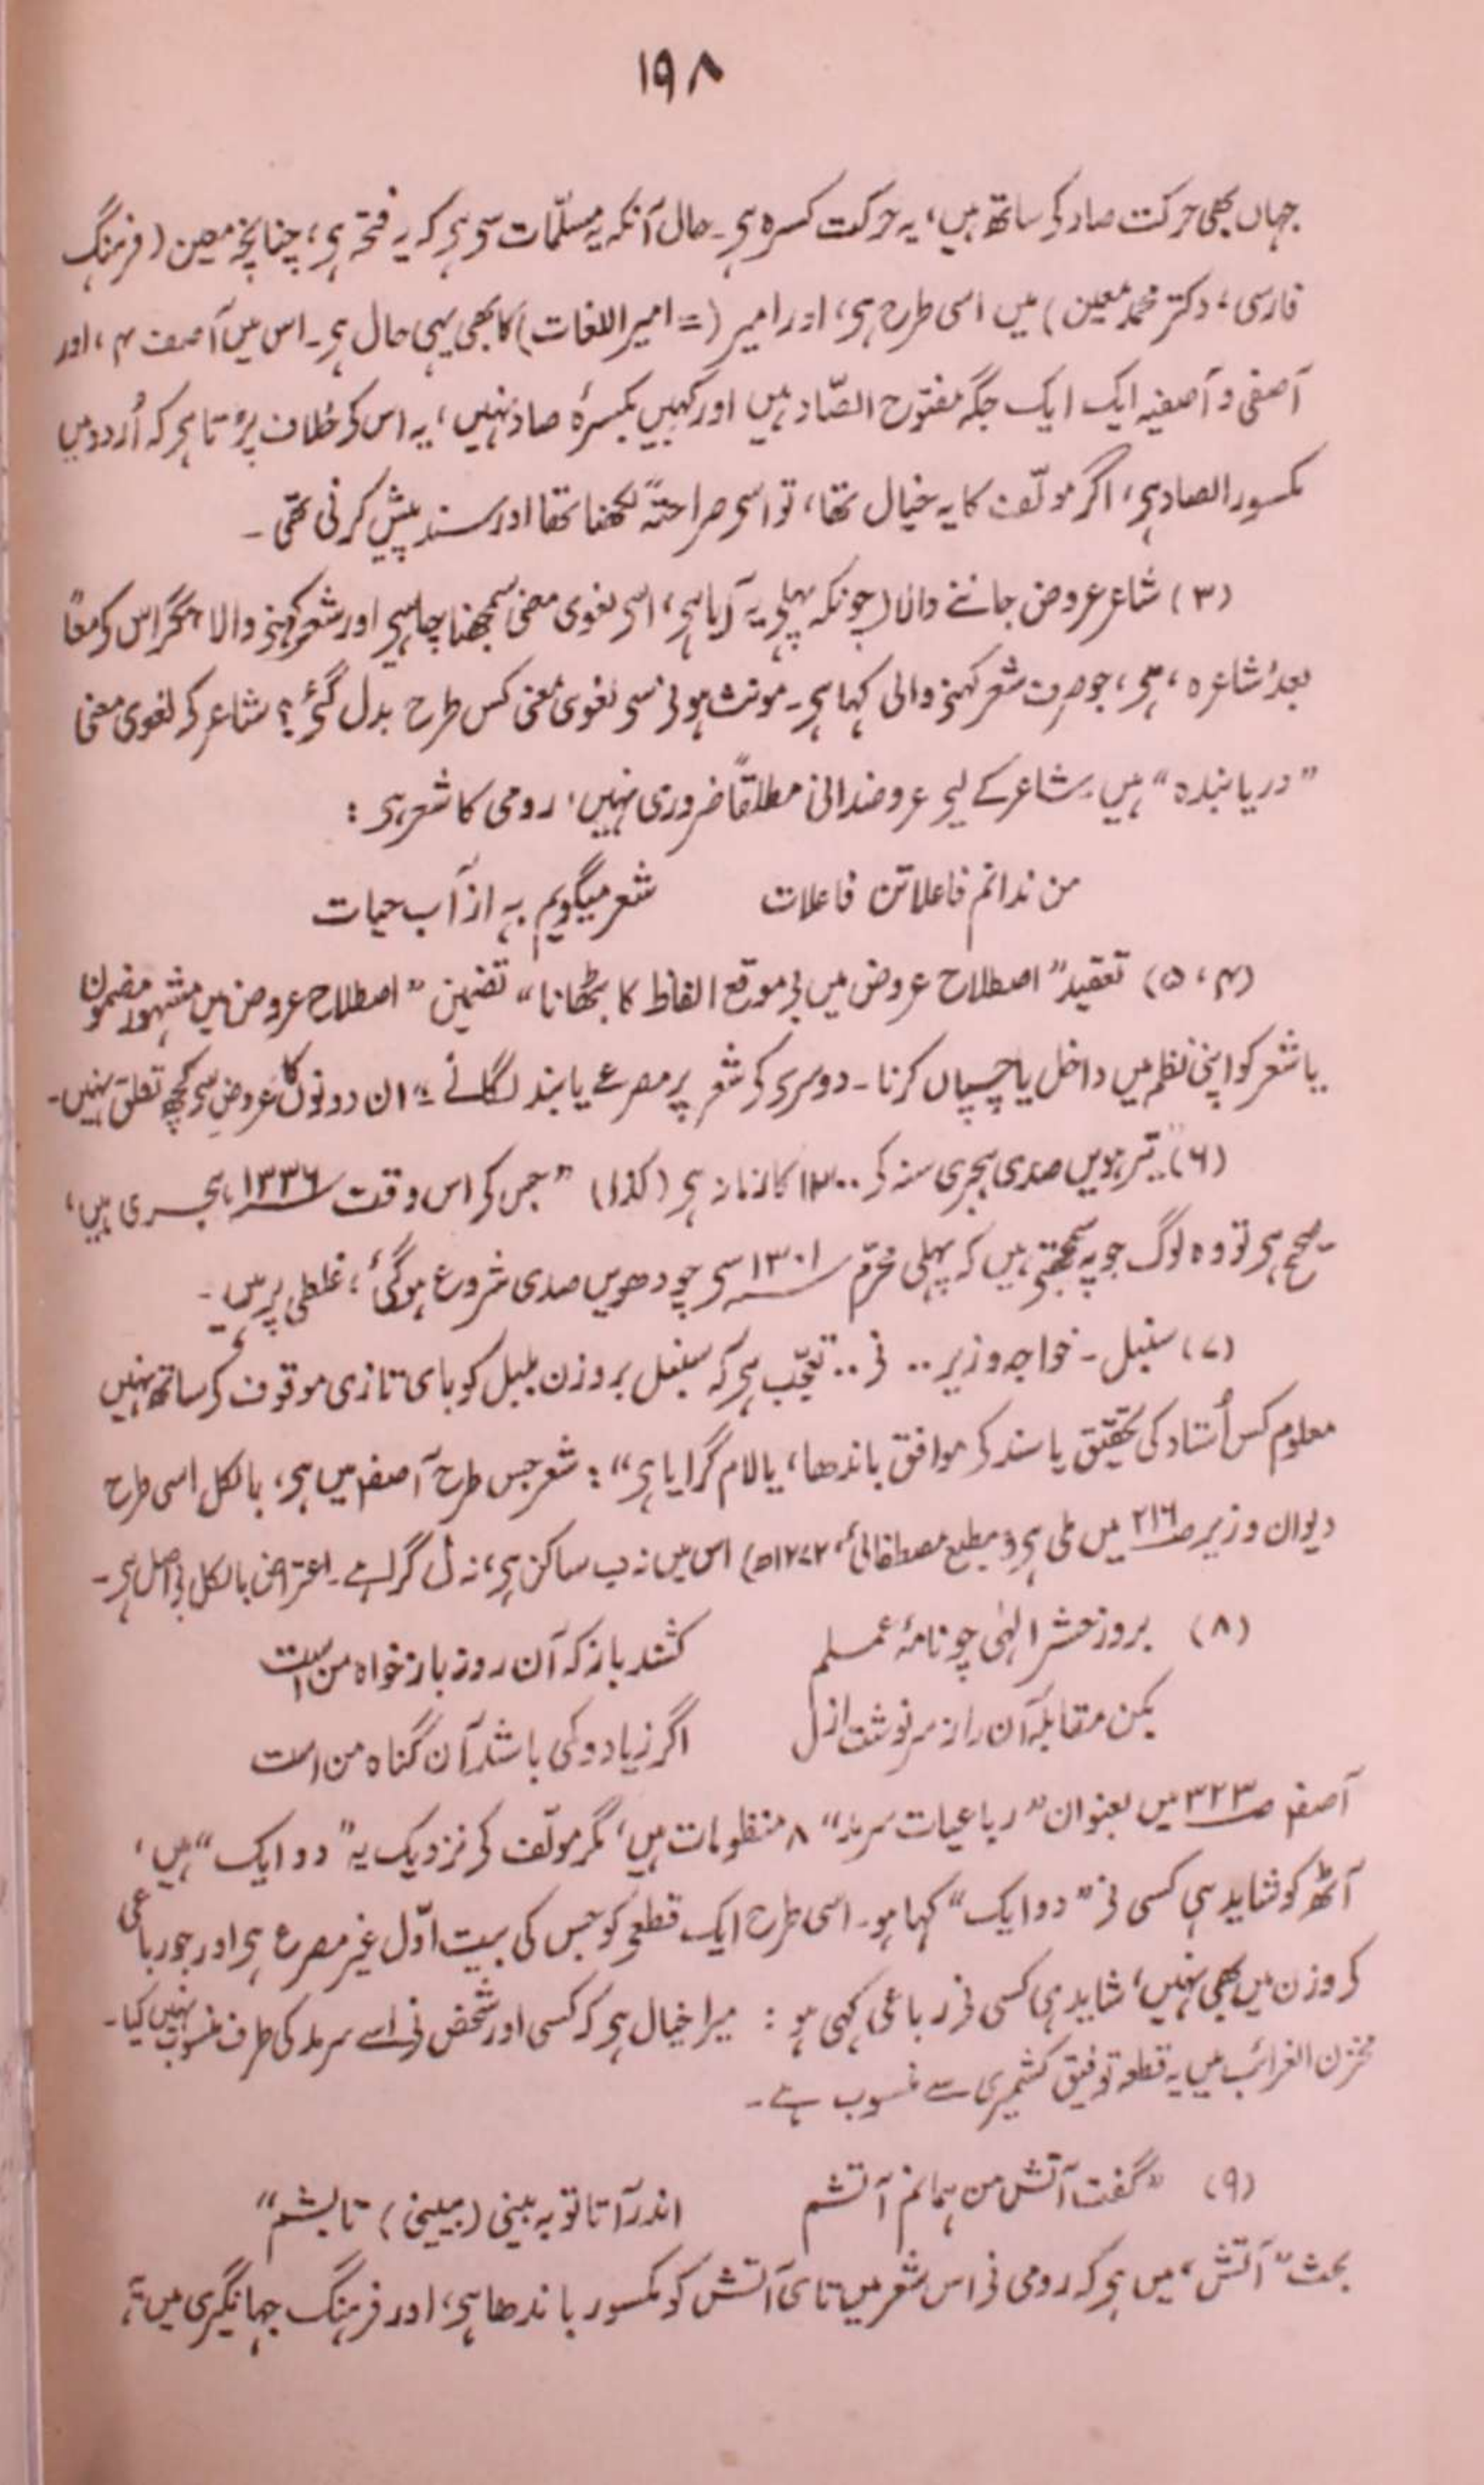 ۱۹۸
جہاں بھی حرکت صاد کے ساتھ ہیں، یہ حرکت کسرہ ہے۔ حال آنکہ یہ مسلّمات سے ہے کہ یہ فتحہ ہے، چنانچہ معین (فرہنگ
فارسی، دکتر محمد معین) میں اسی طرح ہے، اور امیر (= امیر اللغات) کا بھی یہی حال ہے۔ اس میں آصف ۴، اور
آصفی و آصفیہ ایک ایک جگہ مفتوح الصّاد ہیں اور کہیں بکسرۂ صاد نہیں، یہ اس کے خلاف پڑتا ہے کہ اُردو میں
مکسور الصاد ہے، اگر مولّف کا یہ خیال تھا، تو اسے صراحتہً لکھنا تھا اور سند پیش کرنی تھی۔
(۳) شاعر عروض جاننے والا (چونکہ پہلے یہ آیا ہے، اسے لغوی معنی سمجھنا چاہیے اور شعر کہنے والا، مگر اس کے معاً
بعد 'شاعرہ' ہے، جو صرف شعر کہنے والی کہا ہے۔ مونث ہونے سے لغوی معنی کس طرح بدل گئے؟ شاعر کے لغوی معنی
"دریابندہ" ہیں۔ شاعر کے لیے عروضدانی مطلقاً ضروری نہیں، رومی کا شعر ہے:
من ندانم فاعلاتن فاعلات شعر میگویم بہ از آب حیات
(۴، ۵) تعقید "اصطلاح عروض میں بے موقع الفاظ کا بٹھانا" تضمین "اصطلاح عروض میں مشہور مضمون
یا شعر کو اپنی نظم میں داخل یا چسپاں کرنا۔ دوسرے کے شعر پر مصرعے یا بند لگانے": ان دونوں کا عروض سے کچھ تعلق نہیں۔
(۶) "تیرہویں صدی ہجری سنہ کے ۱۳۰۰ کا زمانہ ہے (کذا) "جس کے اس وقت ۱۳۳۶ ہجری ہیں،
صحیح ہے تو وہ لوگ جو یہ سمجھتے ہیں کہ پہلی محرّم ۱۳۰۱ سے چودھویں صدی شروع ہو گئی، غلطی پر ہیں۔
(۷) سنبل۔ خواجہ وزیر .. نے .. تعجّب ہے کہ سنبل بروزن بلبل کو بای تازی موقوف کے ساتھ نہیں
معلوم کس اُستاد کی تحقیق یا سند کے موافق باندھا، یا لام گرایا ہے": شعر جس طرح آصفہ میں ہے، بالکل اسی طرح
دیوان وزیر ص۲۱۶ میں ملی ہے (مطبع مصطفائی، ۱۲۷۲ھ) اس میں نہ ب ساکن ہے، نہ ل گرا ہے۔ اعتراض بالکل بے اصل ہے۔
(۸) بروز حشر الٰہی چو نامۂ عملم کنند باز کہ آن روز باز خواہ من است
بکن مقابلہ آن را ز سرنوشت ازل اگر زیاد و کمی باشد آن گناہ من است
آصفہ ص۳۲۳ میں بعنوان "رباعیات سرمد" ۸ منظومات ہیں، مگر مولّف کے نزدیک یہ "دو ایک" ہیں،
آٹھ کو شاید ہی کسی نے "دو ایک" کہا ہو۔ اسی طرح ایک قطعے کو جس کی بیت اوّل غیر مصرع ہے اور جو رباعی
کے وزن میں بھی نہیں، شاید ہی کسی نے رباعی کہی ہو: میرا خیال ہے کہ کسی اور شخص نے اسے سرمد کی طرف منسوب نہیں کیا۔
مخزن الغرائب میں یہ قطعہ توفیق کشمیری سے منسوب ہے۔
(۹) "گفت آتش من ہمانم آتشم اندر آ تا تو بہ بینی (ببینی) تابشم"
بحث "آتش، میں ہے کہ رومی نے اس شعر میں تای آتش کو مکسور باندھا ہے، اور فرہنگ جہانگیری میں